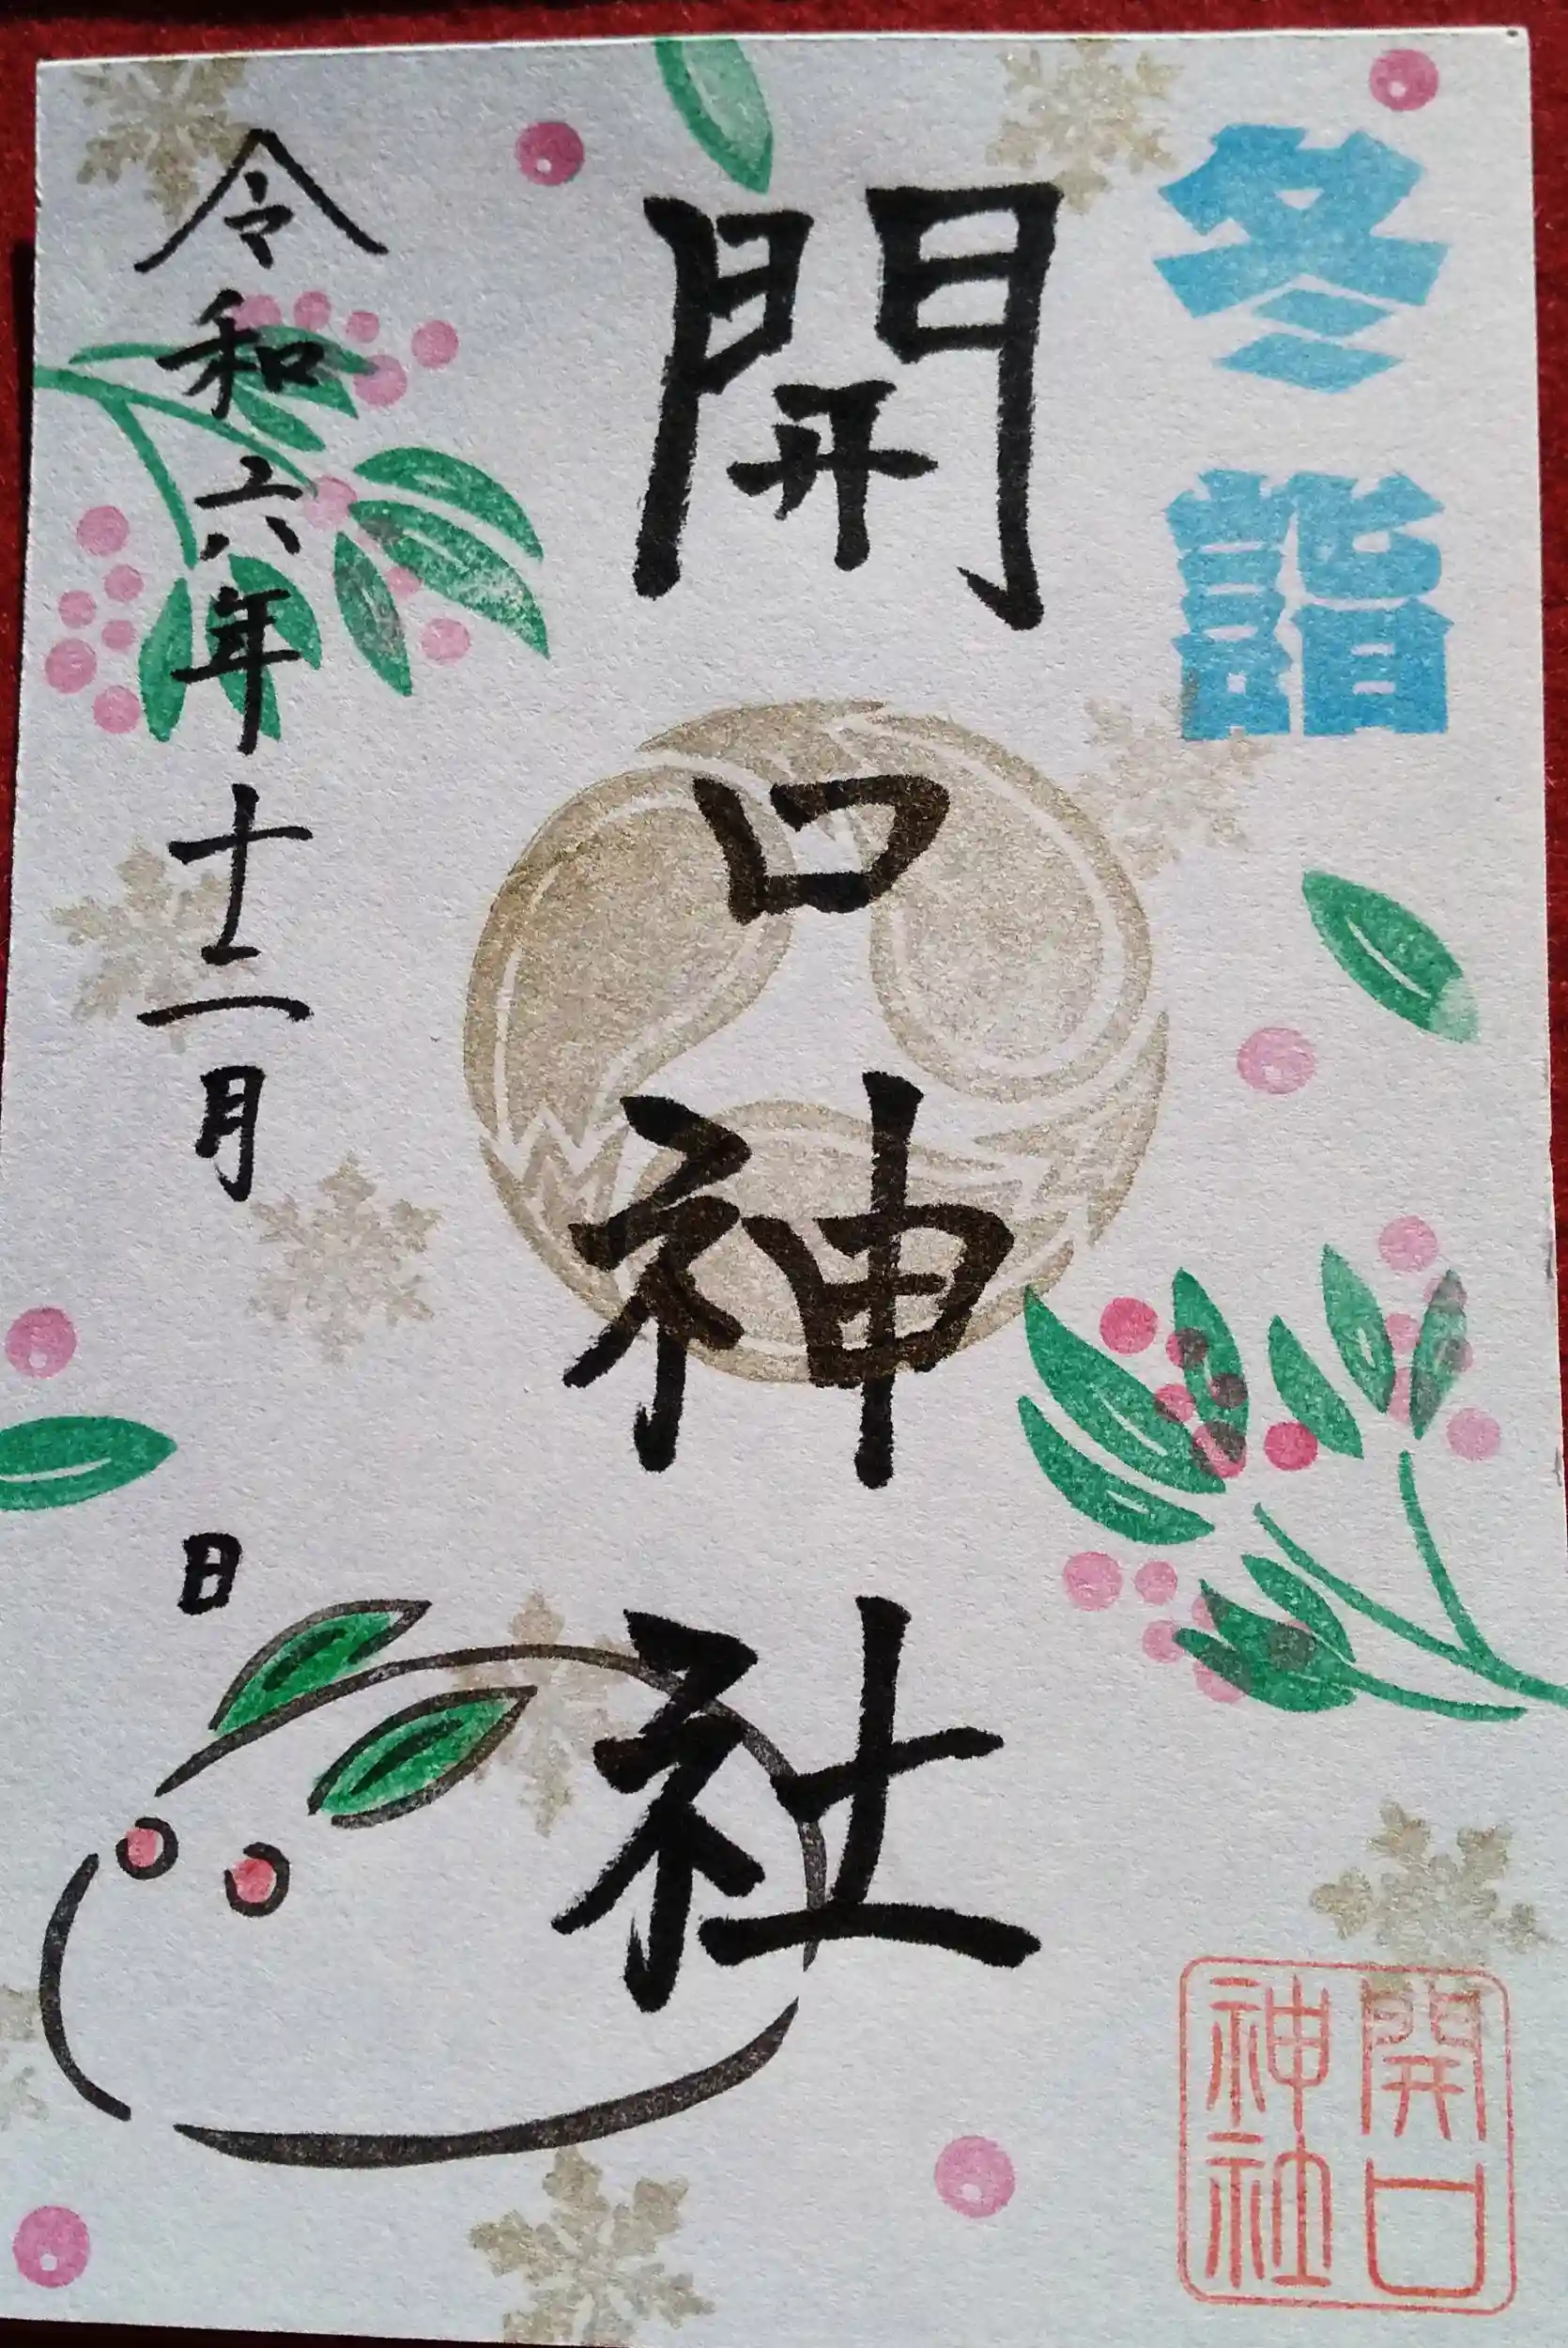 冬詣
開口神社
令和六年十二月
日
開口
神社